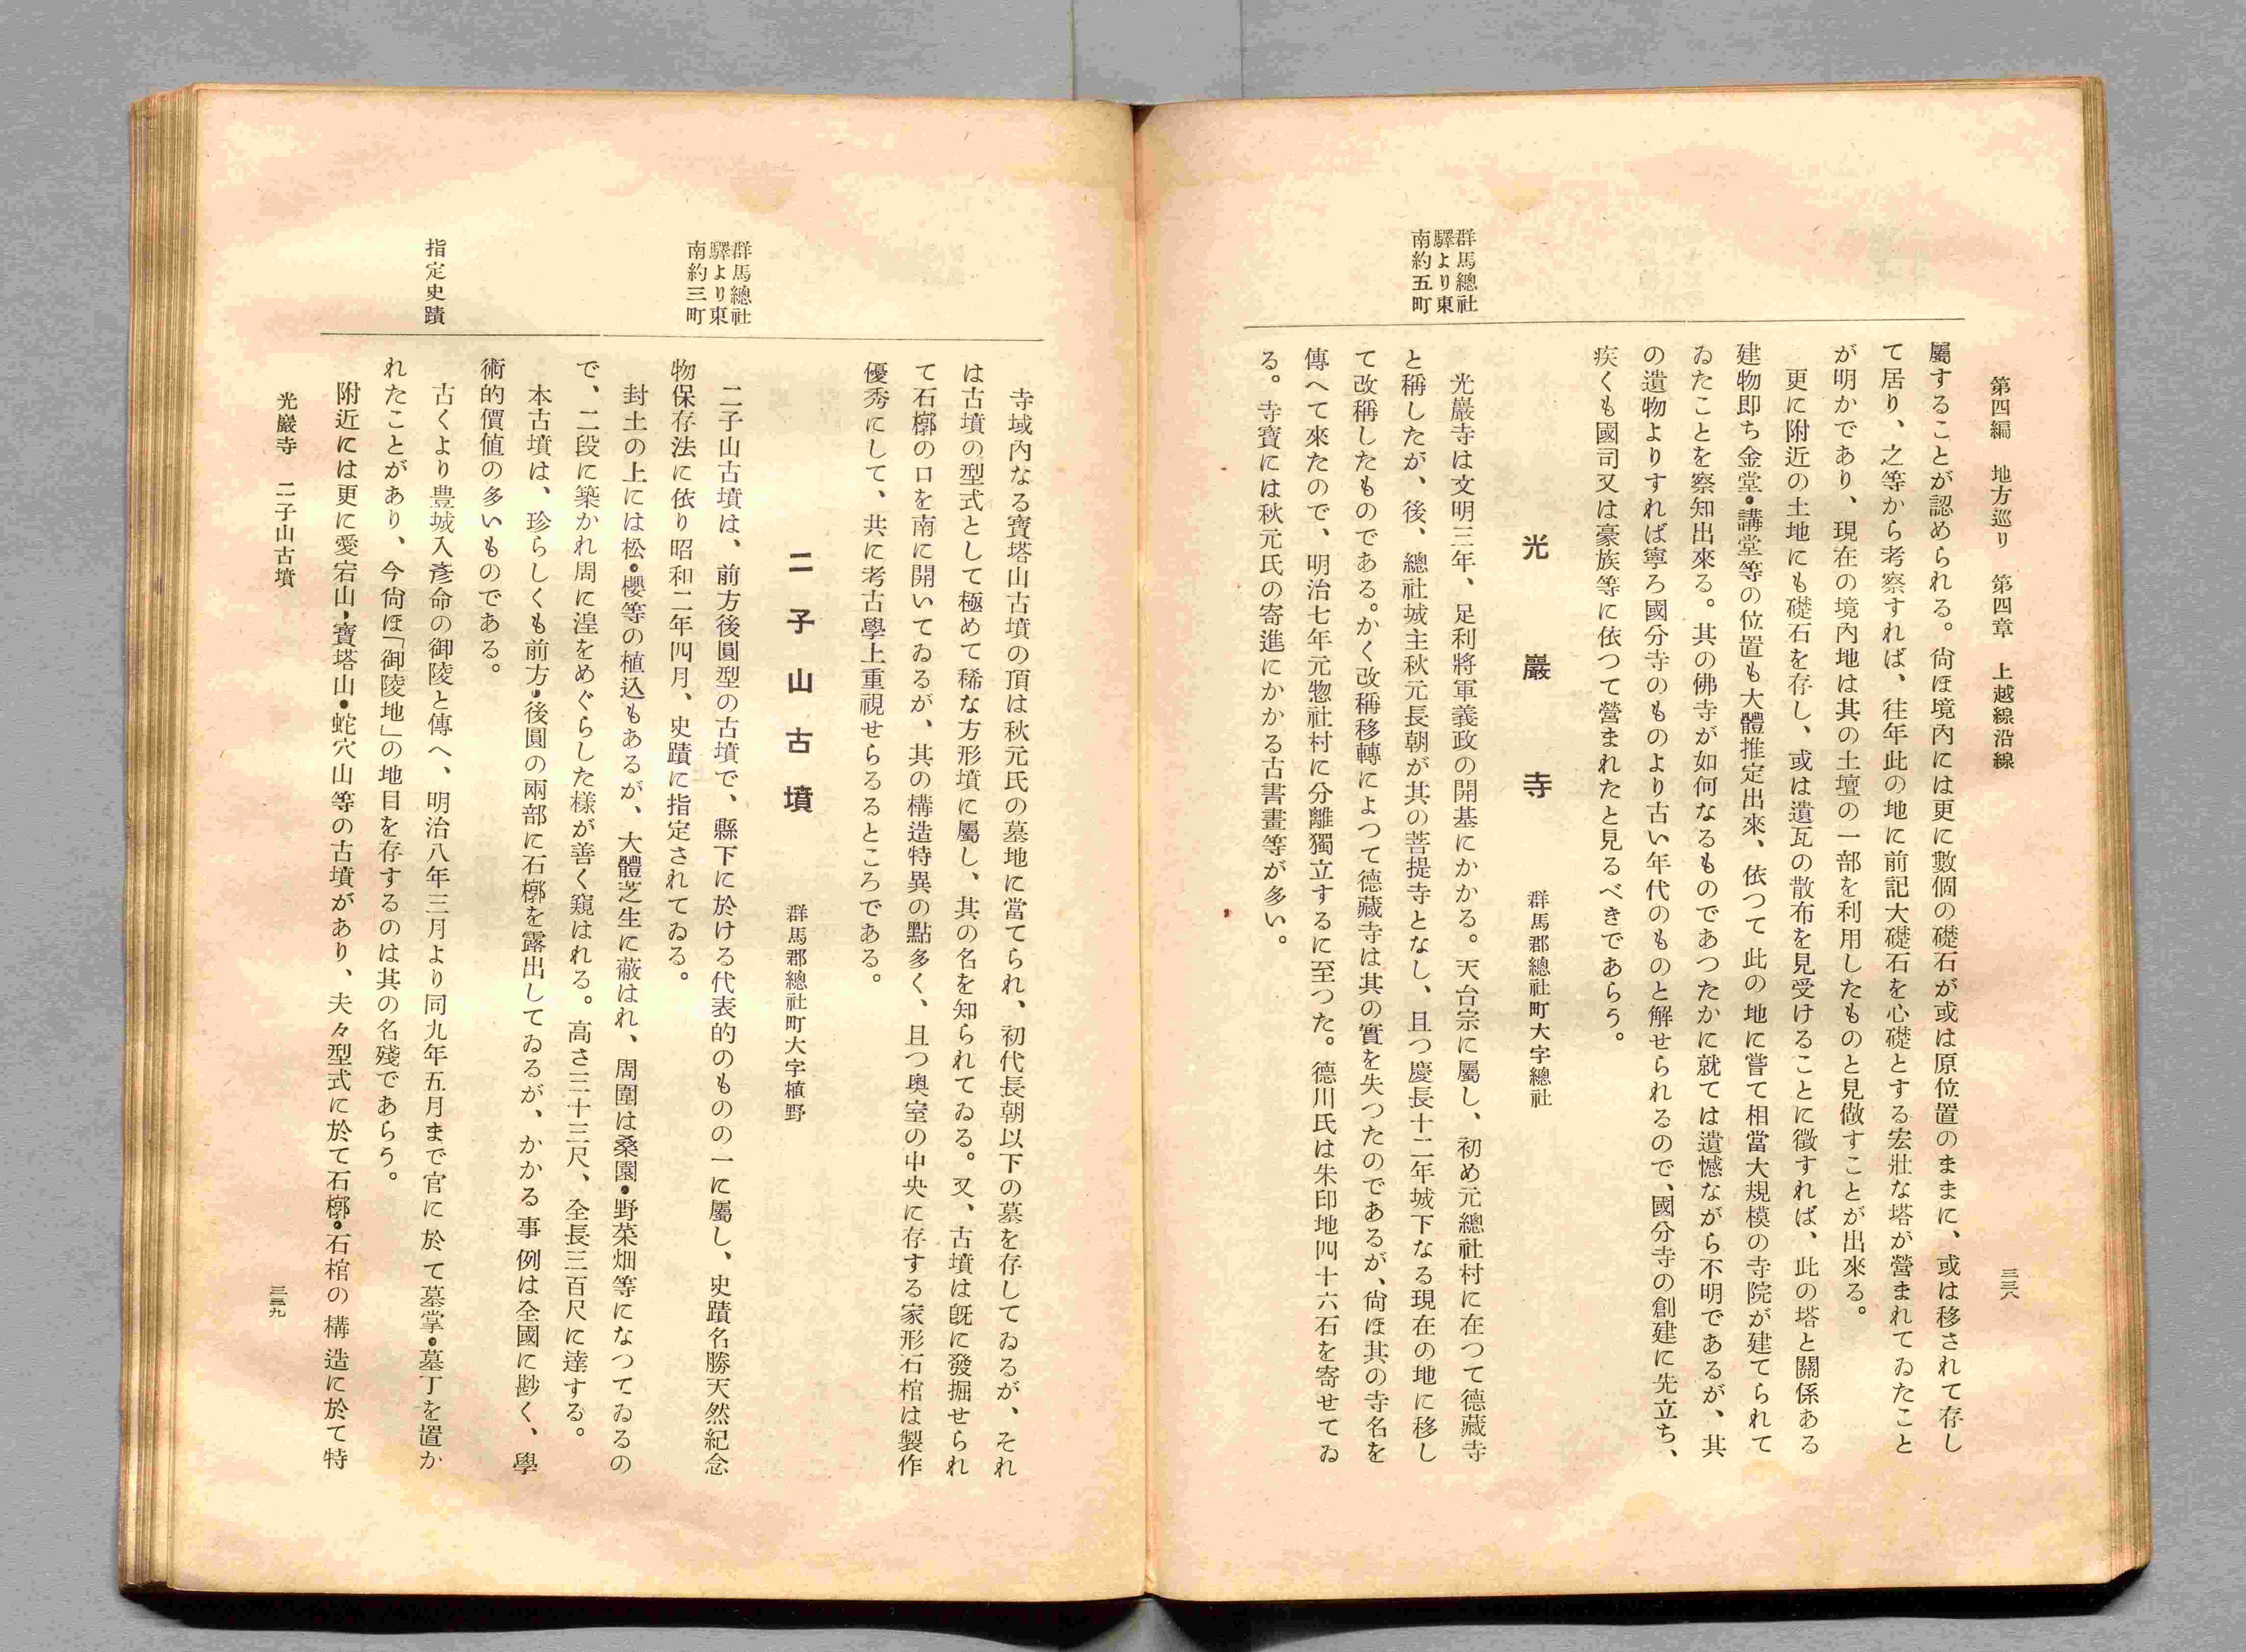 第四編　地方巡り　第四章　上越線沿線
三三八
屬することが認められる。尙ほ境內には更に數個の礎石が或は原位置のままに、或は移されて存し
て居り、之等から考察すれば、往年此の地に前記大礎石を心礎とする宏壯な塔が營まれてゐたこと
が明かであり、現在の境內地は其の土壇の一部を利用したものと見做すことが出來る。
更に附近の土地にも礎石を存し、或は遺瓦の散布を見受けることに徵すれば、此の塔と關係ある
建物卽ち金堂・講堂等の位置も大體推定出來、依つて此の地に嘗て相當大規模の寺院が建てられて
ゐたことを察知出來る。其の佛寺が如何なるものであつたかに就ては遺憾ながら不明であるが、其
の遺物よりすれば寧ろ國分寺のものより古い年代のものと解せられるので、國分寺の創建に先立ち、
疾くも國司又は豪族等に依つて營まれたと見るべきであらう。
光巖寺
群馬郡總社町大字總社
群馬總社
驛より東
南約五町
光巖寺は文明三年、足利將軍義政の開基にかかる。天台宗に屬し、初め元總社村に在つて德藏寺
と稱したが、後、總社城主秋元長朝が其の菩提寺となし、且つ慶長十二年城下なる現在の地に移し
て改稱したものである。かく改稱移轉によつて德藏寺は其の實を失つたのであるが、尙ほ其の寺名を
傳へて來たので、明治七年元惣社村に分離獨立するに至つた。德川氏は朱印地四十六石を寄せてゐ
る。寺寶には秋元氏の寄進にかかる古書畫等が多い。
寺域內なる寶塔山古墳の頂は秋元氏の墓地に當てられ、初代長朝以下の墓を存してゐるが、それ
は古墳の型式として極めて稀な方形墳に屬し、其の名を知られてゐる。又、古墳は旣に發掘せられ
て石槨の口を南に開いてゐるが、其の構造特異の點多く、且つ奥室の中央に存する家形石棺は製作
優秀にして、共に考古學上重視せらるるところである。
二子山古墳
群馬郡總社町大字植野
群馬總社
驛より東
南約三町
二子山古墳は、前方後圓型の古墳で、縣下に於ける代表的のものの一に屬し、史蹟名勝天然紀念
物保存法に依り昭和二年四月、史蹟に指定されてゐる。
封土の上には松・櫻等の植込もあるが、大體芝生に蔽はれ、周圍は桑園・野菜畑等になつてゐるの
で、二段に築かれ周に湟をめぐらした樣が善く窺はれる。高さ三十三尺、全長三百尺に達する。
本古墳は、珍らしくも前方・後圓の兩部に石槨を露出してゐるが、かかる事例は全國に尠く、學
術的價値の多いものである。
指定史蹟
古くより豊城入彥命の御陵と傳へ、明治八年三月より同九年五月まで官に於て墓掌・墓丁を置か
れたことがあり、今尙ほ「御陵地」の地目を存するのは其の名殘であらう。
附近には更に愛宕山・寶塔山・蛇穴山等の古墳があり、夫々型式に於て石槨・石棺の構造に於て特
光巖寺　二子山古墳
三三九